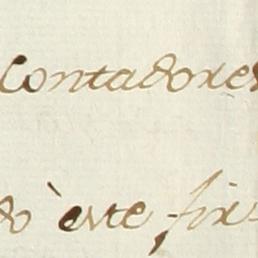 Contadores
do este fir